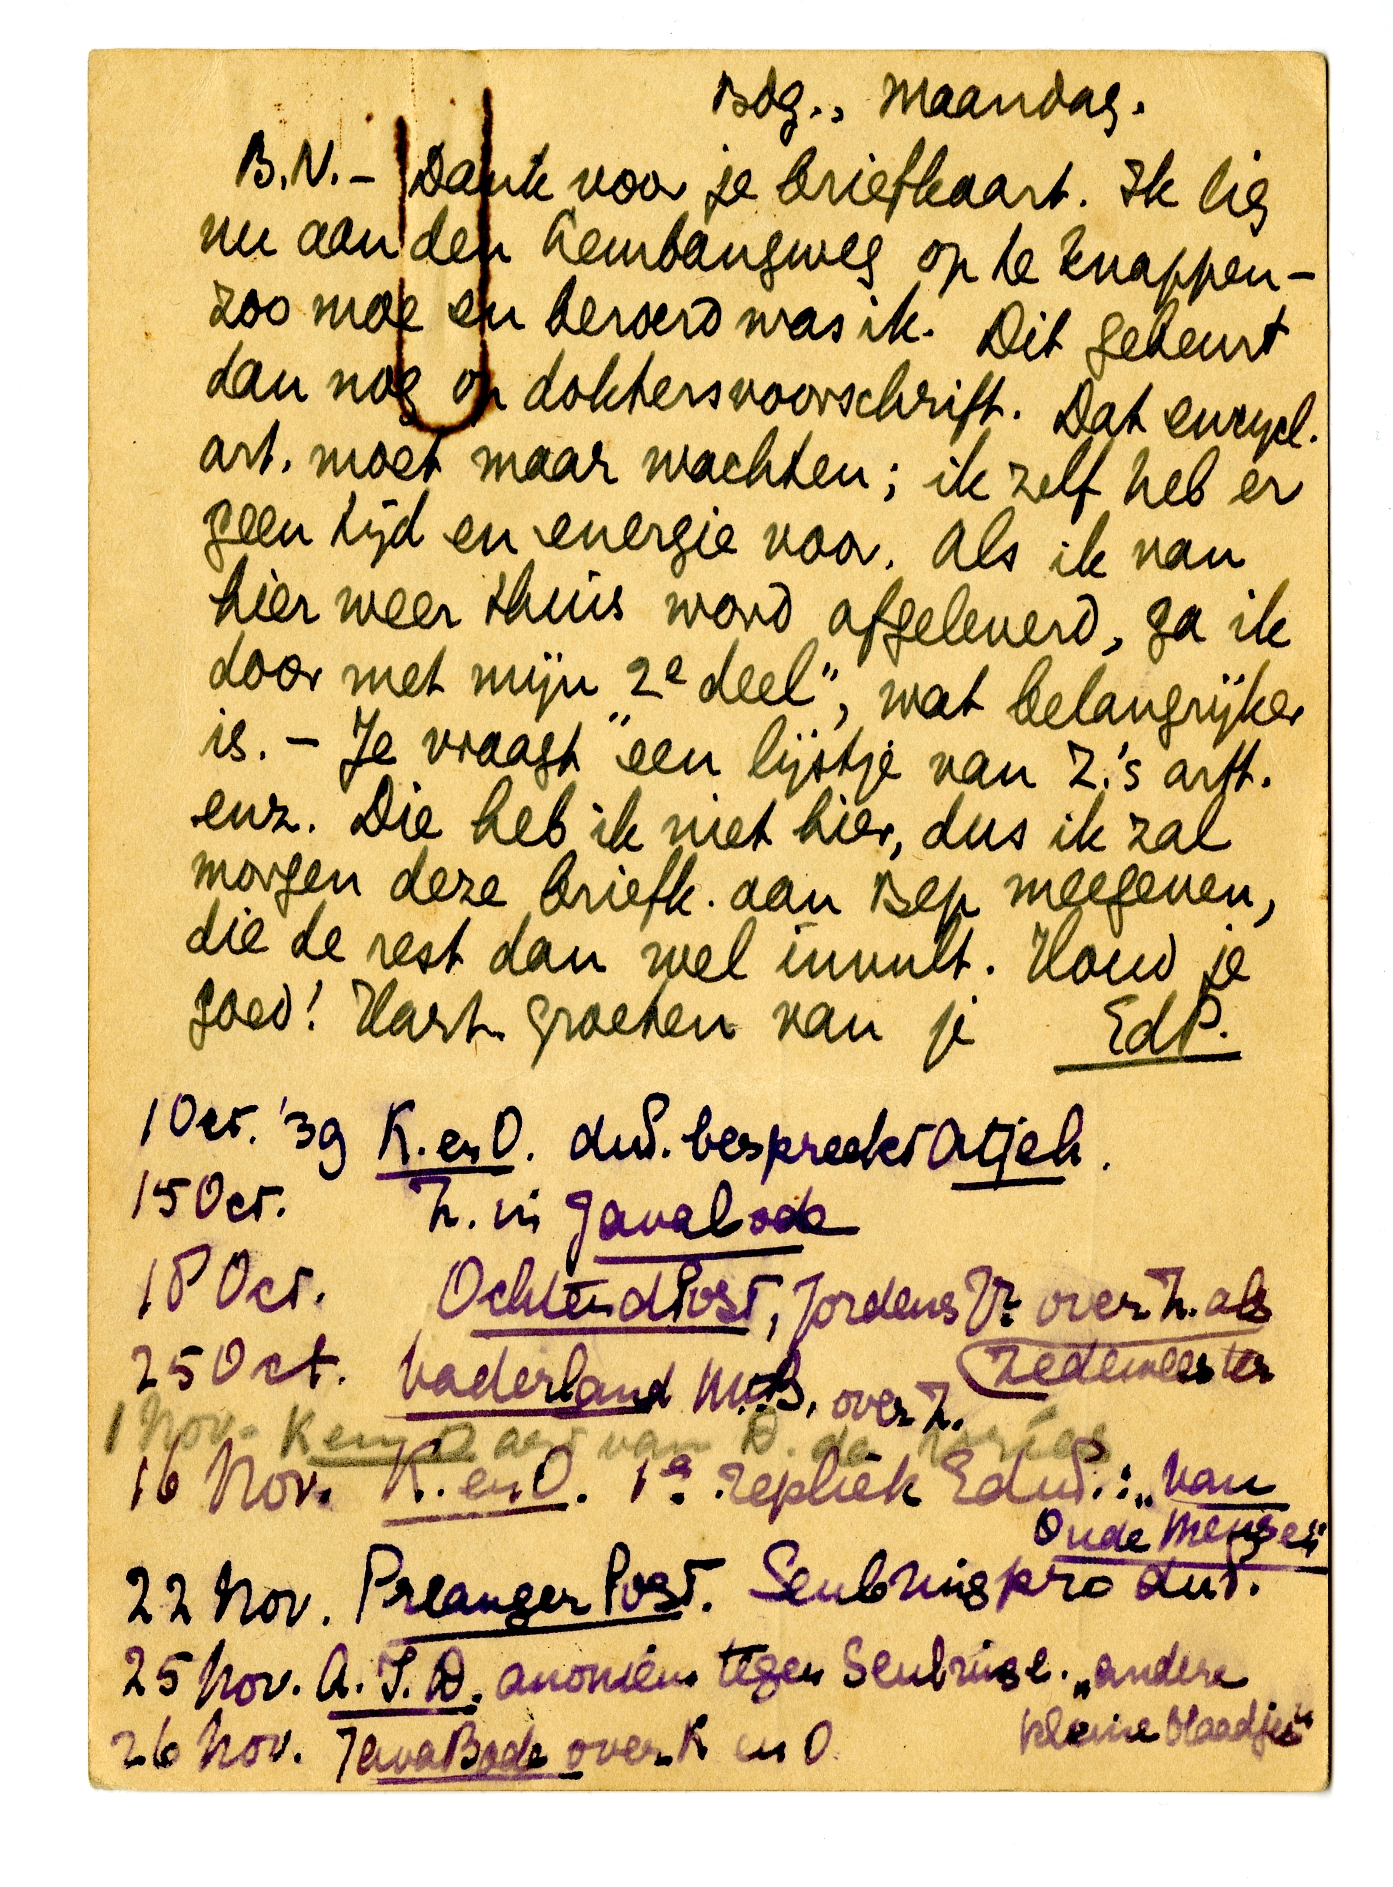 Bdg., Maandag.
B.N. – Dank voor je briefkaart. Ik lig
nu aan den Kembangweg op te knappen –
zoo moe en beroerd was ik. Dit gebeurt
dan nog op doktersvoorschrift. Dat encycl.
art. moet maar wachten; ik zelf heb er
geen tijd en energie voor. Als ik van
hier weer thuis word afgeleverd, ga ik
door met mijn 2e deel", wat belangrijker
is. – Je vraagt "een lijstje van Z.'s artt.
enz. Die heb ik niet hier, dus ik zal
morgen deze briefk. aan Bep meegeven,
die de rest dan wel invult. Houd je
goed! Hart. groeten van je EdP.
1 Oct. '39 K. en O. duP. bespreekt Atjeh.
15 Oct. Z. in Javabode
18 Oct. OchtendPost, Jordens Jr over Z. als
zedemeester
25 Oct. Vaderland M.t.B. over Z.
1 Nov. K en O art van D. de Vries
16 Nov. K. en O. 1e repliek EduP.: „Van
Oude Mensen"
22 Nov. PreangerPost. Seubring pro duP.
25 Nov. A.I.D. anoniem tegen Seubring. „andere
kleine blaadjes"
26 Nov. JavaBode over K en O